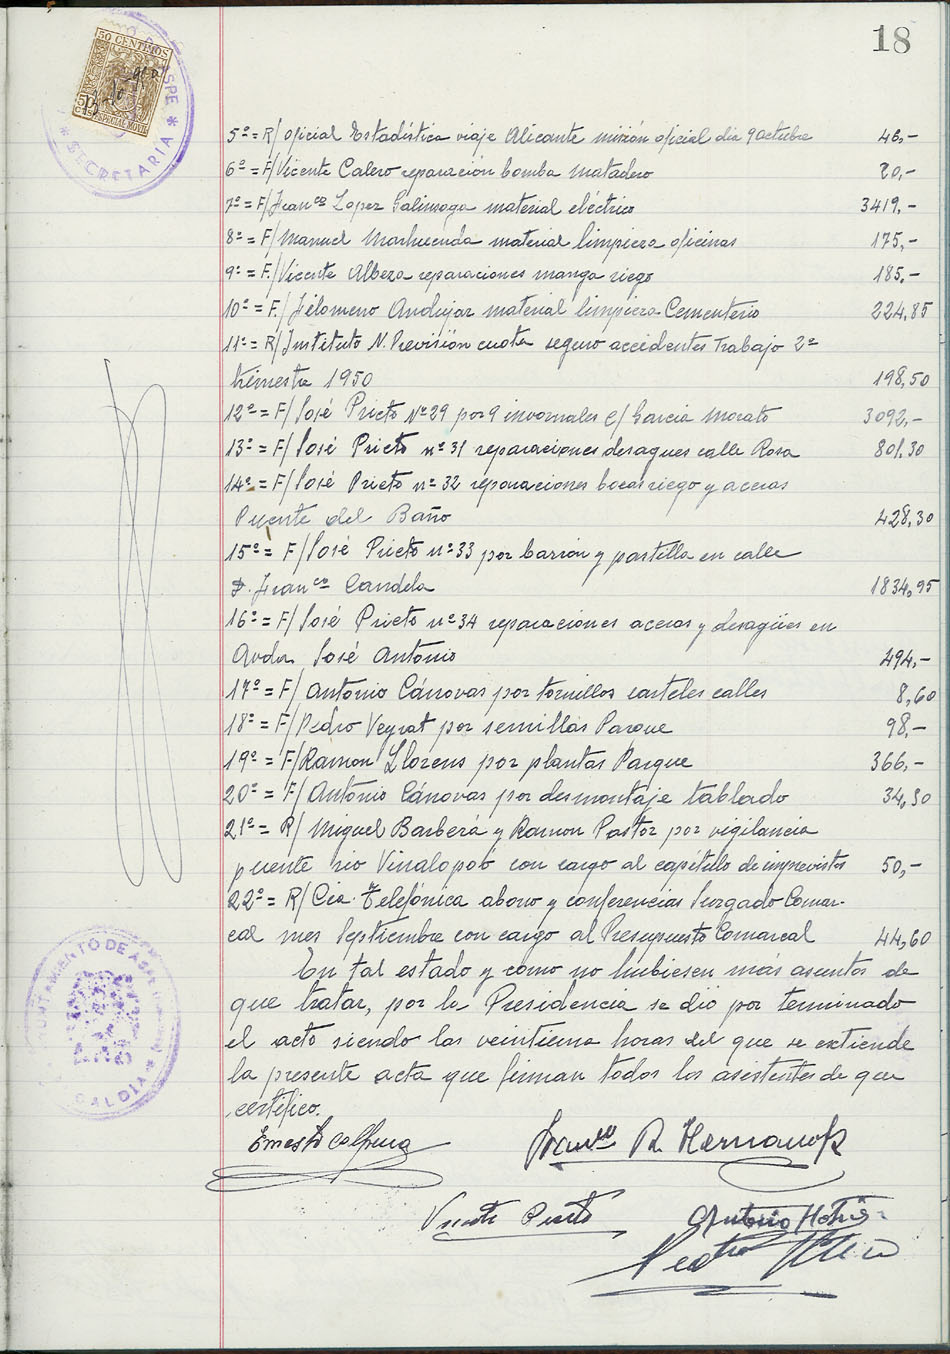 18
50 CENTIMOS
ESPECIAL MOVIL
ASPE
* SECRETARIA *
5º = R/ oficial Estadística viaje Alicante misión oficial dia 9 octubre 46,-
6º = F/ Vicente Calero reparación bomba matadero 20,-
7º = F/ Franco Lopez Galinsoga material eléctrico 3419,-
8º = F/ Manuel Marhuenda material limpieza oficinas 175,-
9º = F./ Vicente Albeza reparaciones manga riego 185,-
10º = F./ Filomeno Andujar material limpieza Cementerio 224,85
11º = R/ Instituto N. Previsión cuota seguro accidentes Trabajo 2º
trimestre 1950 198,50
12º = F/ José Prieto Nº 29 por 9 invornales c/ Garcia Morato 3092,-
13º = F/ José Prieto nº 31 reparaciones desagues calle Rosa 801,30
14º = F/ José Prieto nº 32 reparaciones bocas riego y aceras
Puente del Baño 428,30
15º = F/ José Prieto nº 33 por barrón y pastilla en calle
D. Franco Candela 1834,95
16º = F/ José Prieto nº 34 reparaciones aceras y desagües en
Avda. José Antonio 494,-
17º = F/ Antonio Cánovas por tornillos carteles calles 8,60
18º = F/ Pedro Veyrat por semillas Parque 98,-
19º = F/ Ramon Llorens por plantas Parque 366,-
20º = F/ Antonio Cánovas por desmontaje tablado 34,30
21º = R/ Miguel Barberá y Ramon Pastor por vigilancia
puente rio Vinalopob con cargo al capítulo de imprevistos 50,-
22º = R/ Cia. Telefónica abono y conferencias Juzgado Comar-
cal mes Septiembre con cargo al Presupuesto Comarcal 44,60
En tal estado y como no hubiesen más asuntos de
que tratar, por la Presidencia se dió por terminado
el acto siendo las veintiuna horas del que se extiende
la presente acta que firman todos los asistentes de que
certifico.
AYUNTAMIENTO DE ASPE
ALCALDIA
Ernesto Calpena
Franco R. Hernandez
Vicente Prieto
Antonio